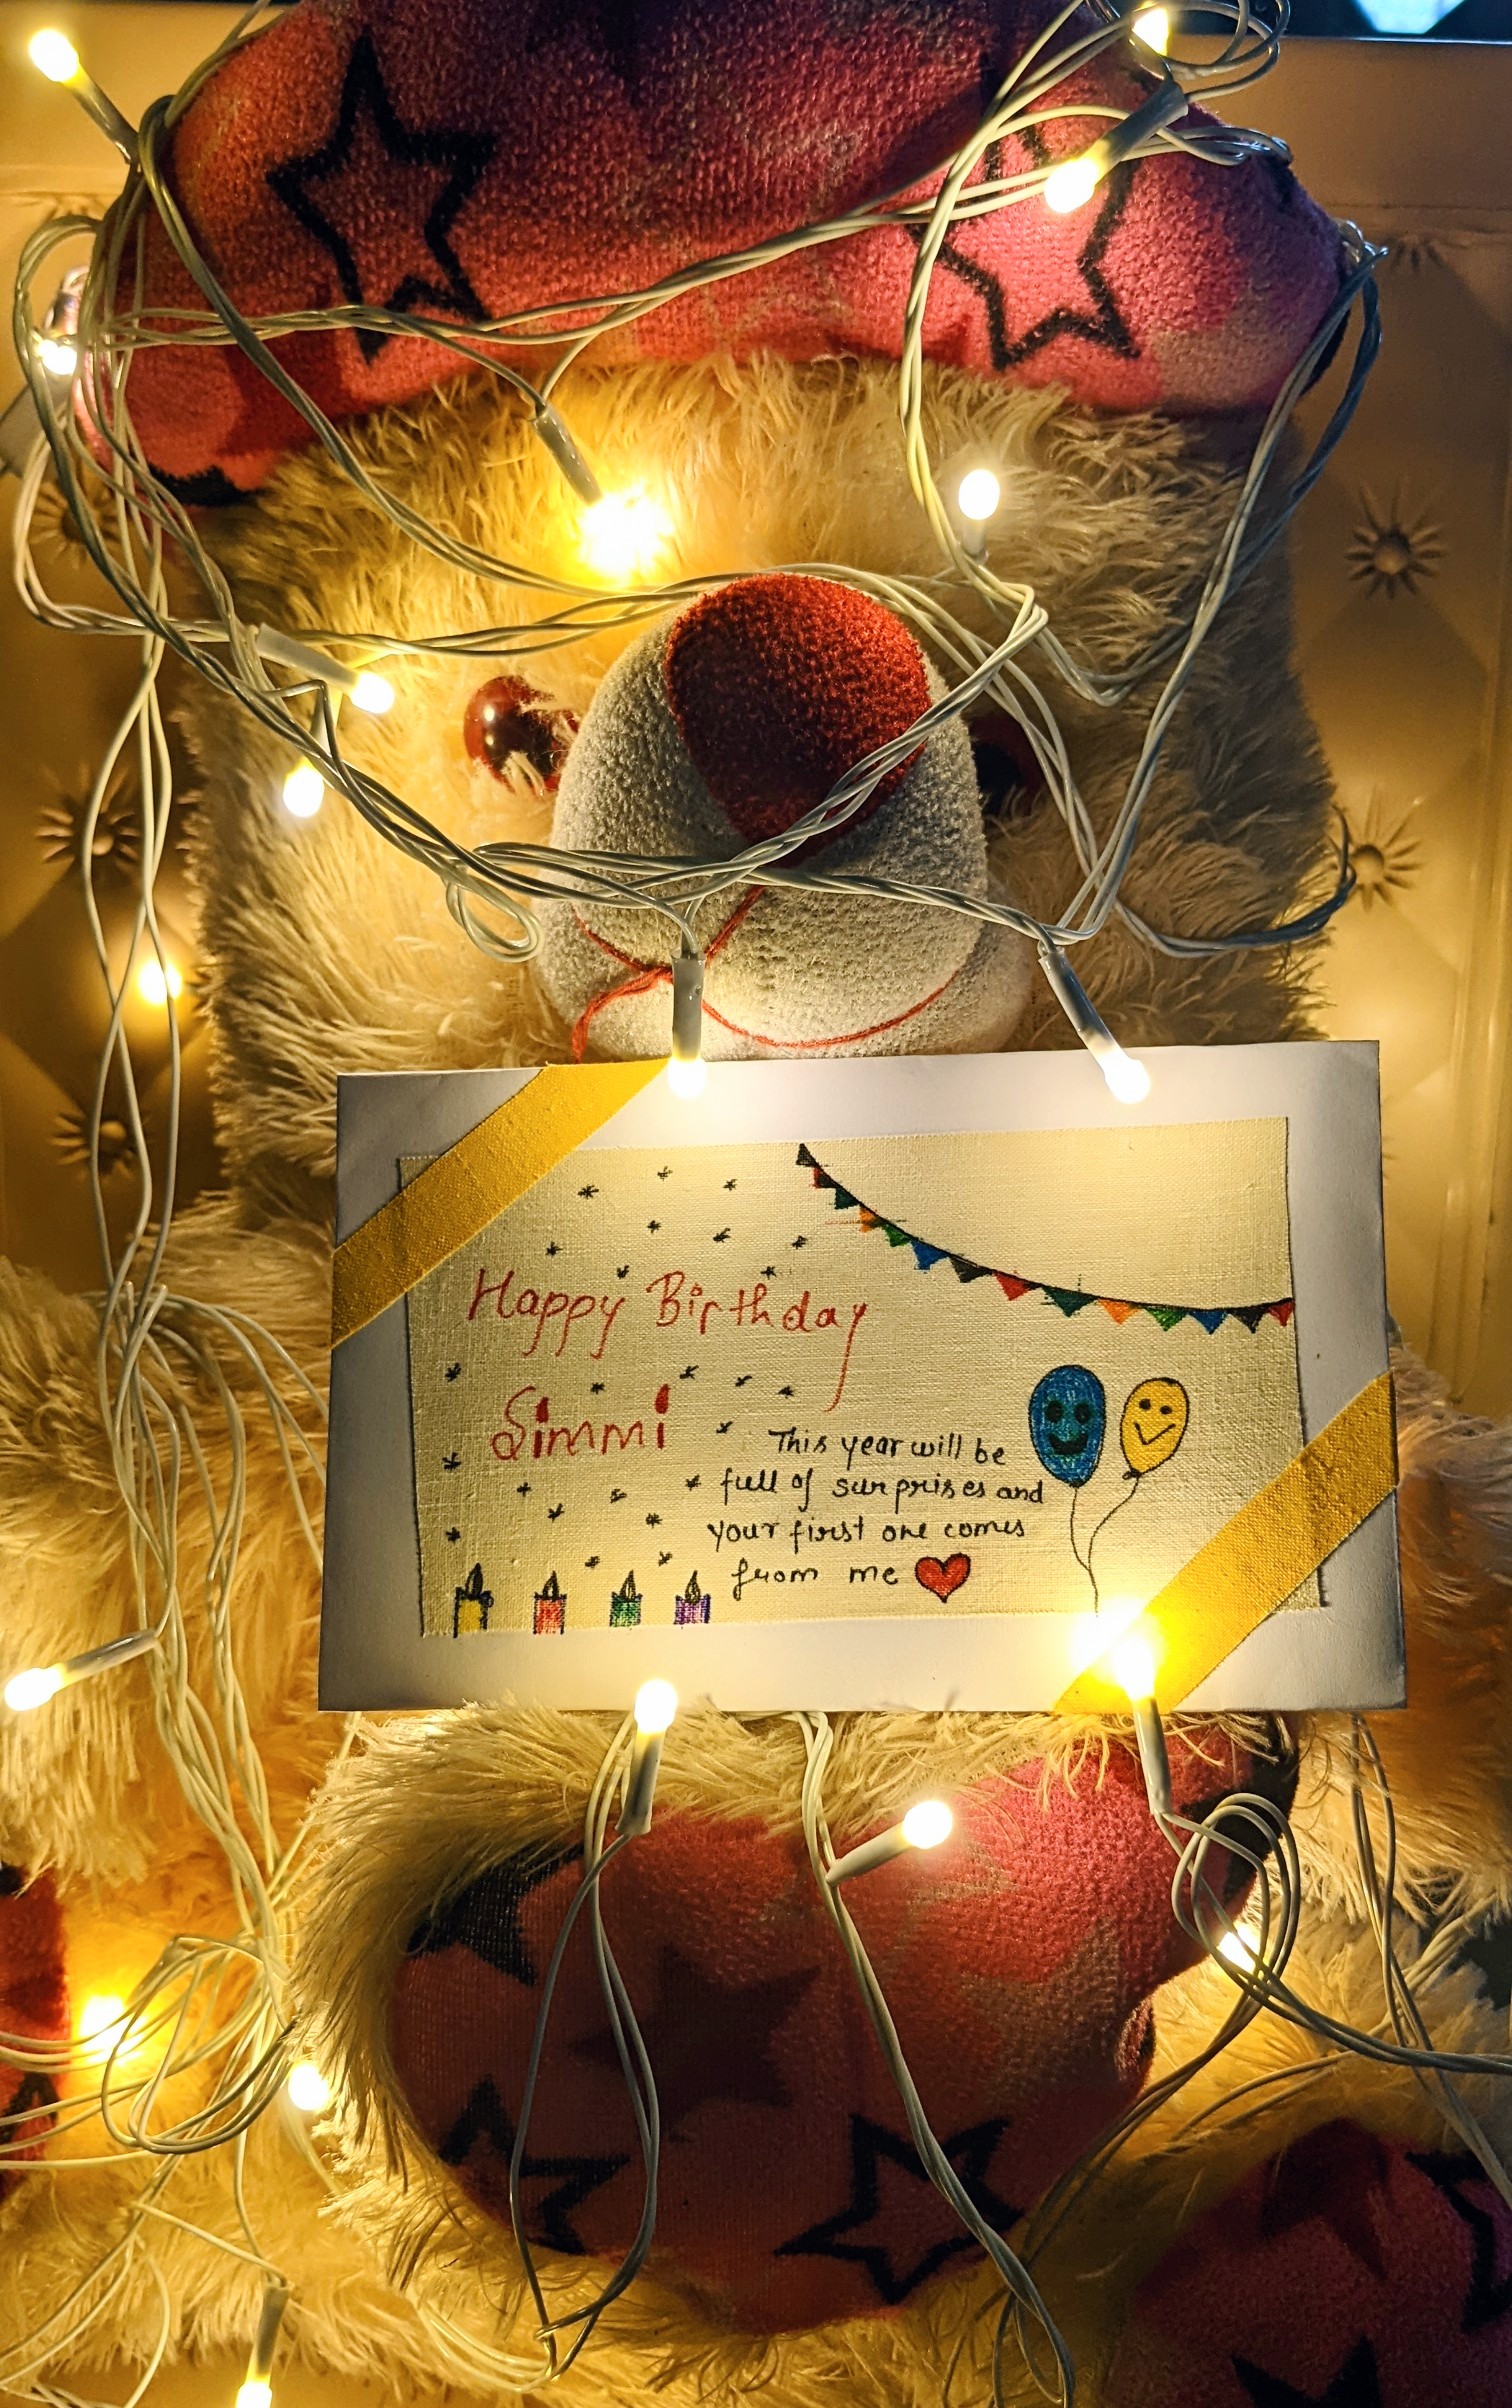 Happy Birthday
Simmi
This year will be
full of surprises and
your first one comes
from me